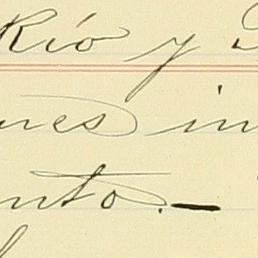 Río y
nes in
nto.—